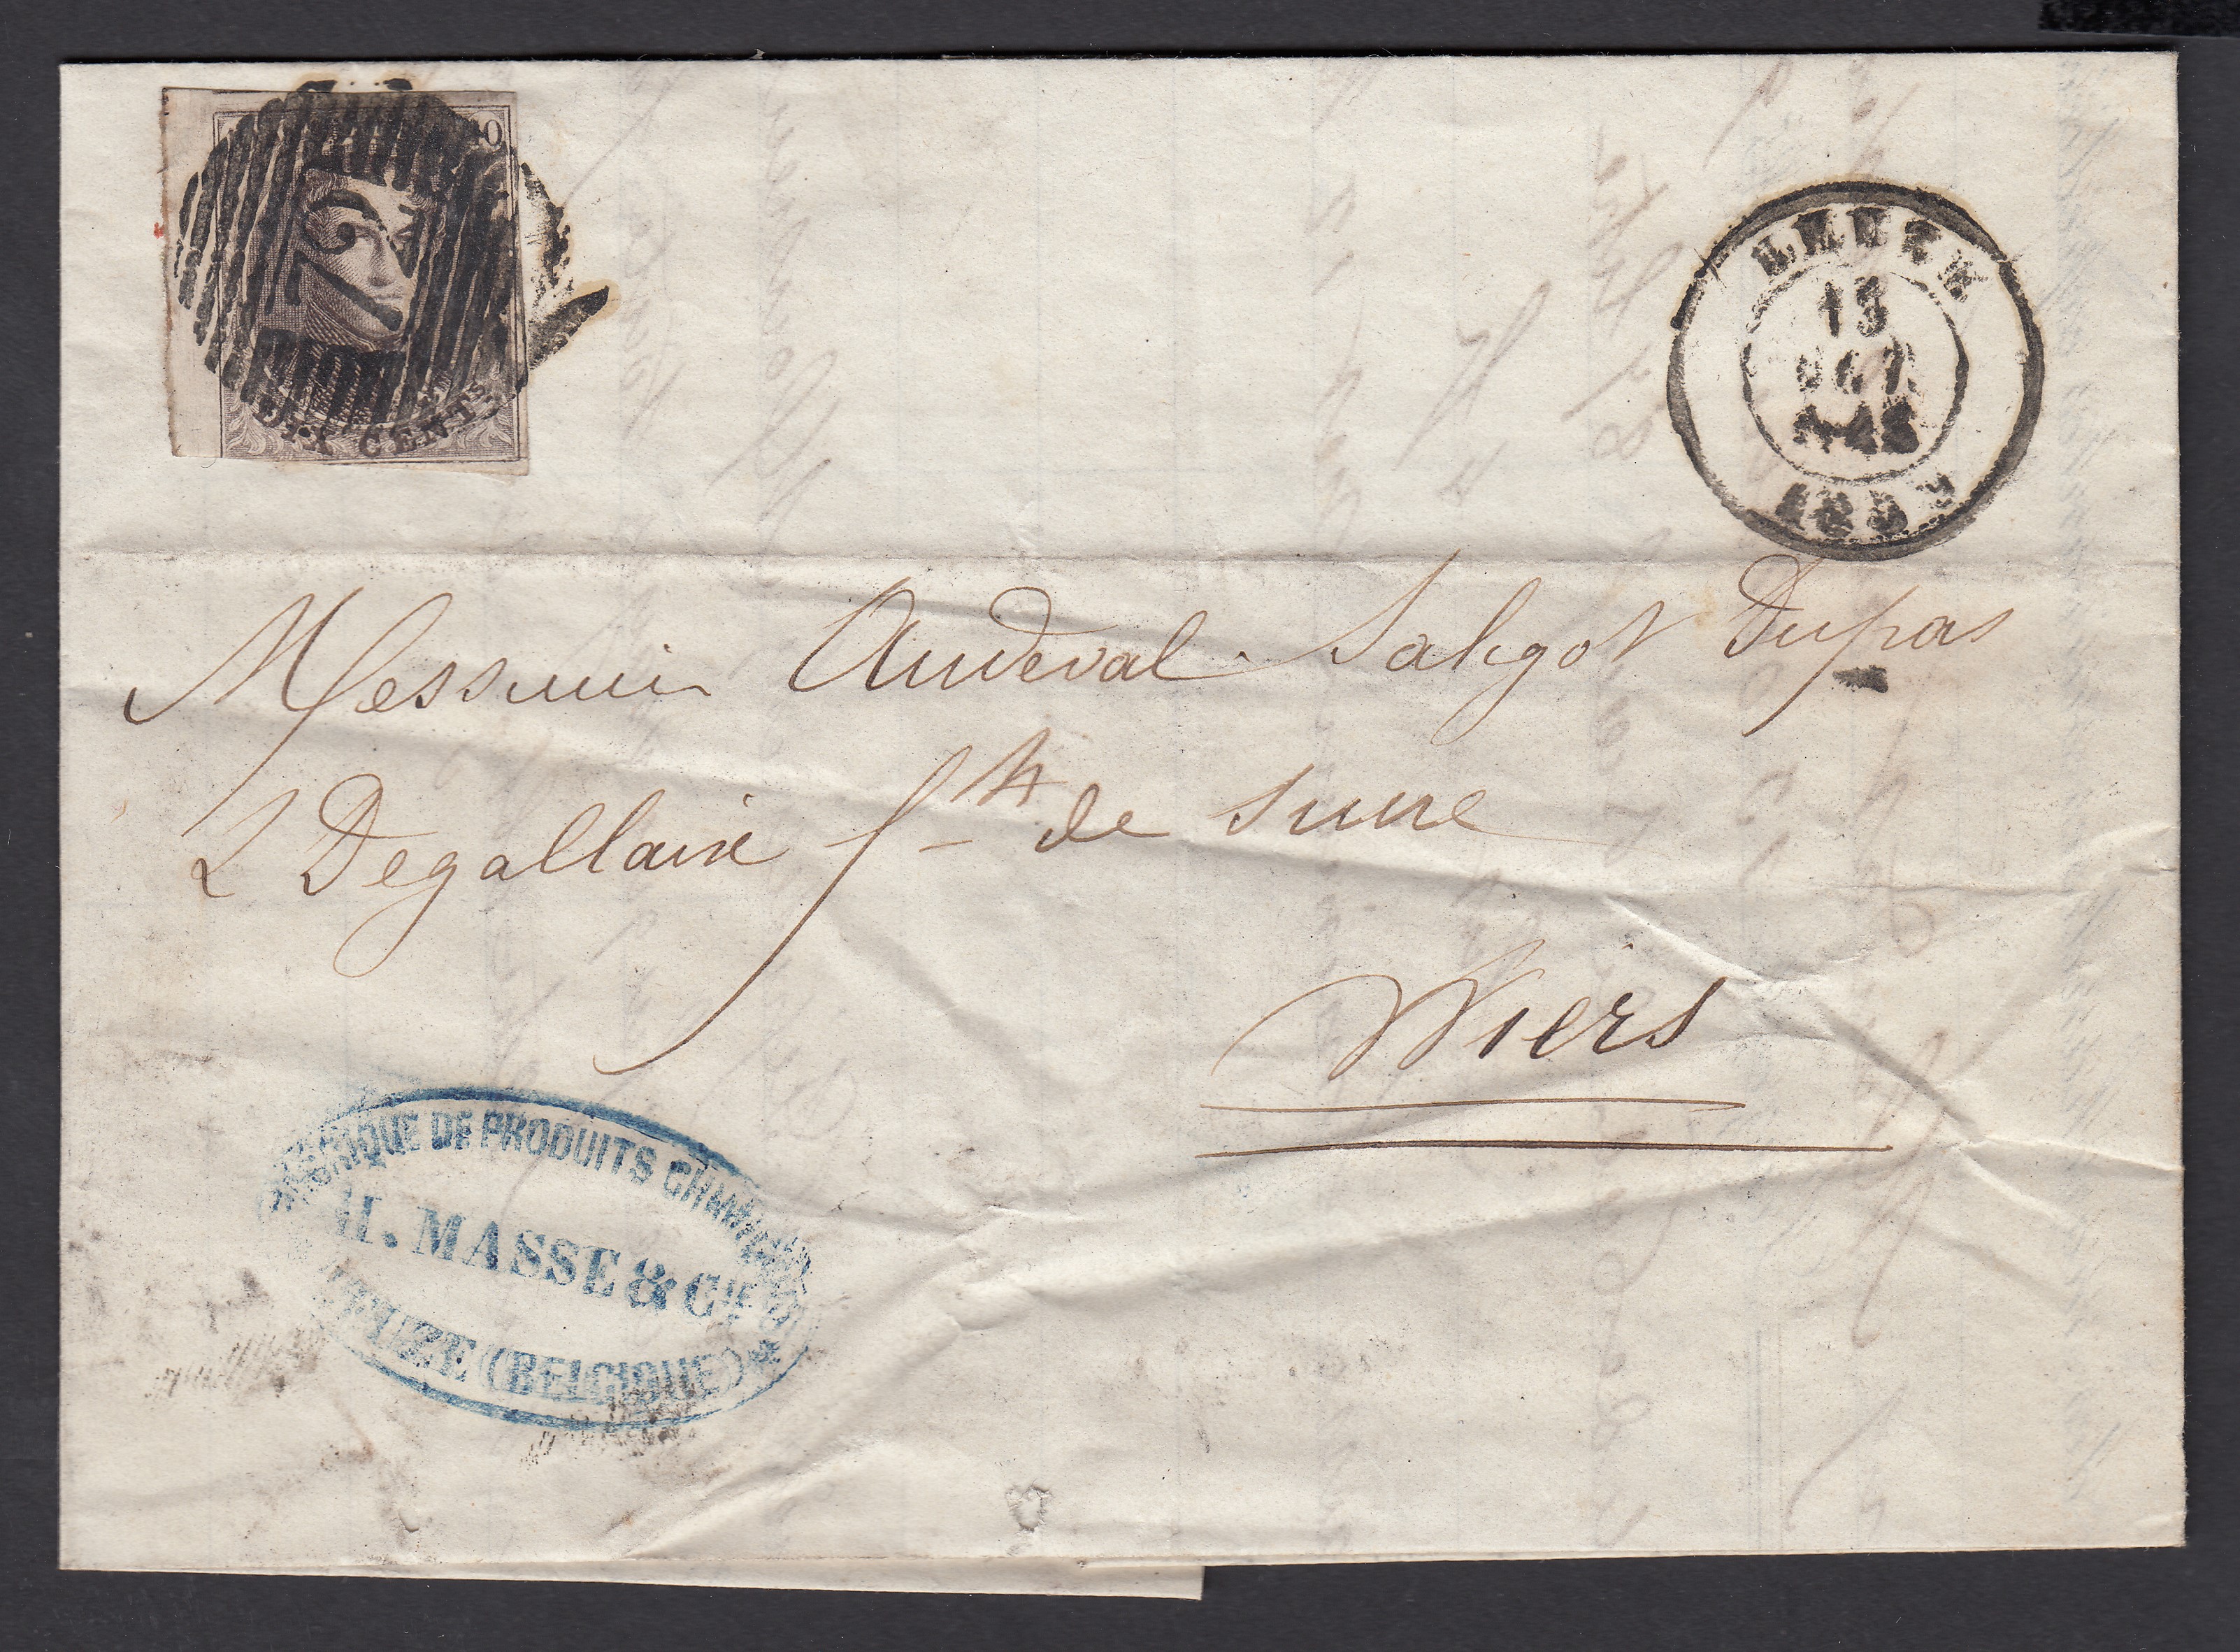 10
72
DIX CENTS
LEUZE
13
OCT
185
Messieurs Andeval Saligot Dupas
& Degallaix f-ts de sucre
Wiers
FABRIQUE DE PRODUITS CHIMIQUES
H. MASSE & CIE
LEUZE (BELGIQUE) *